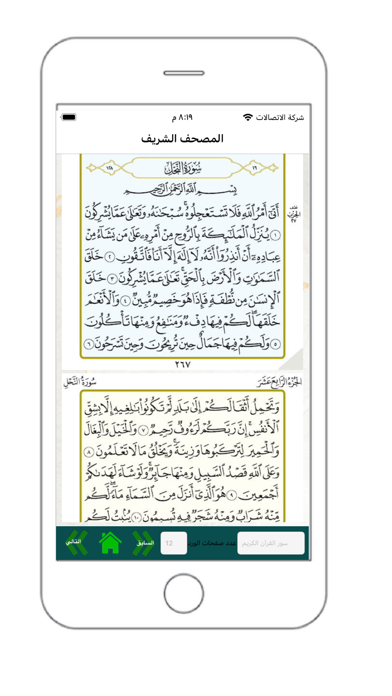 شركة الاتصالات ٨:١٩ م
المصحف الشريف
١٦ سُورَةُ النَّحْلِ ١٢٨
بِسْمِ اللَّهِ الرَّحْمَٰنِ الرَّحِيمِ
أَتَىٰ أَمْرُ اللَّهِ فَلَا تَسْتَعْجِلُوهُ سُبْحَانَهُ وَتَعَالَىٰ عَمَّا يُشْرِكُونَ
١ يُنَزِّلُ الْمَلَائِكَةَ بِالرُّوحِ مِنْ أَمْرِهِ عَلَىٰ مَن يَشَاءُ مِنْ
عِبَادِهِ أَنْ أَنذِرُوا أَنَّهُ لَا إِلَٰهَ إِلَّا أَنَا فَاتَّقُونِ ٢ خَلَقَ
السَّمَاوَاتِ وَالْأَرْضَ بِالْحَقِّ تَعَالَىٰ عَمَّا يُشْرِكُونَ ٣ خَلَقَ
الْإِنسَانَ مِن نُّطْفَةٍ فَإِذَا هُوَ خَصِيمٌ مُّبِينٌ ٤ وَالْأَنْعَامَ
خَلَقَهَا لَكُمْ فِيهَا دِفْءٌ وَمَنَافِعُ وَمِنْهَا تَأْكُلُونَ
٥ وَلَكُمْ فِيهَا جَمَالٌ حِينَ تُرِيحُونَ وَحِينَ تَسْرَحُونَ ٦
٢٦٧
الجُزْءُ الرَّابِعَ عَشَرَ سُورَةُ النَّحْلِ
وَتَحْمِلُ أَثْقَالَكُمْ إِلَىٰ بَلَدٍ لَّمْ تَكُونُوا بَالِغِيهِ إِلَّا بِشِقِّ
الْأَنفُسِ إِنَّ رَبَّكُمْ لَرَءُوفٌ رَّحِيمٌ ٧ وَالْخَيْلَ وَالْبِغَالَ
وَالْحَمِيرَ لِتَرْكَبُوهَا وَزِينَةً وَيَخْلُقُ مَا لَا تَعْلَمُونَ ٨
وَعَلَى اللَّهِ قَصْدُ السَّبِيلِ وَمِنْهَا جَائِرٌ وَلَوْ شَاءَ لَهَدَاكُمْ
أَجْمَعِينَ ٩ هُوَ الَّذِي أَنزَلَ مِنَ السَّمَاءِ مَاءً لَّكُم
مِّنْهُ شَرَابٌ وَمِنْهُ شَجَرٌ فِيهِ تُسِيمُونَ ١٠ يُنبِتُ لَكُم
سور القرآن الكريم عدد صفحات الورد 12 السابق التالي